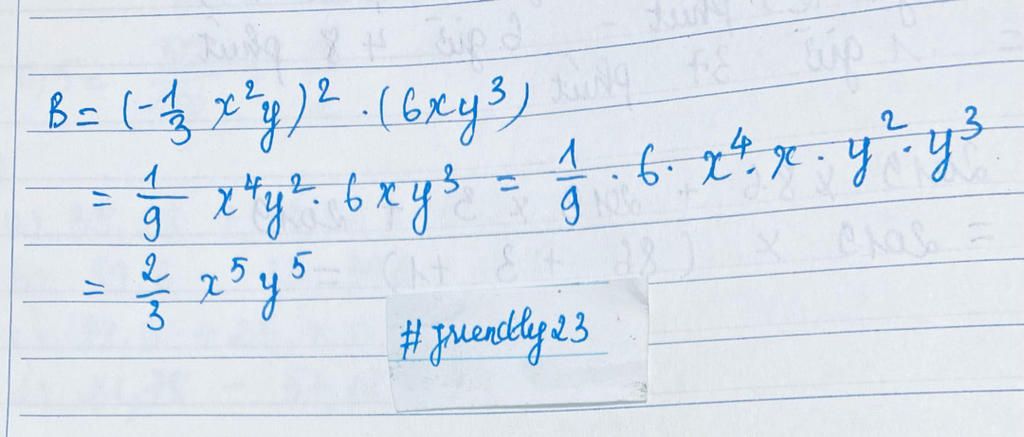 B = (-1/3 x²y)² . (6xy³)
= 1/9 x⁴y² . 6xy³ = 1/9 . 6 . x⁴ . x . y² . y³
= 2/3 x⁵y⁵
#friendly23